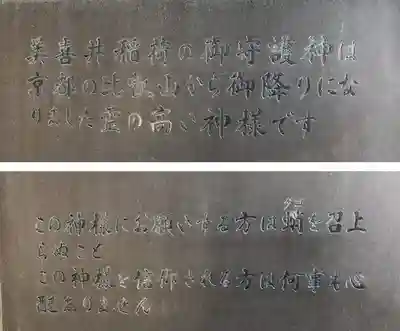 美喜井稲荷の御守護神は
京都の比叡山から御降りにな
りました霊の高い神様です
この神様にお願いする方は蛸を召上
タコ
らぬこと
この神様を信仰される方は何事も心
配ありません